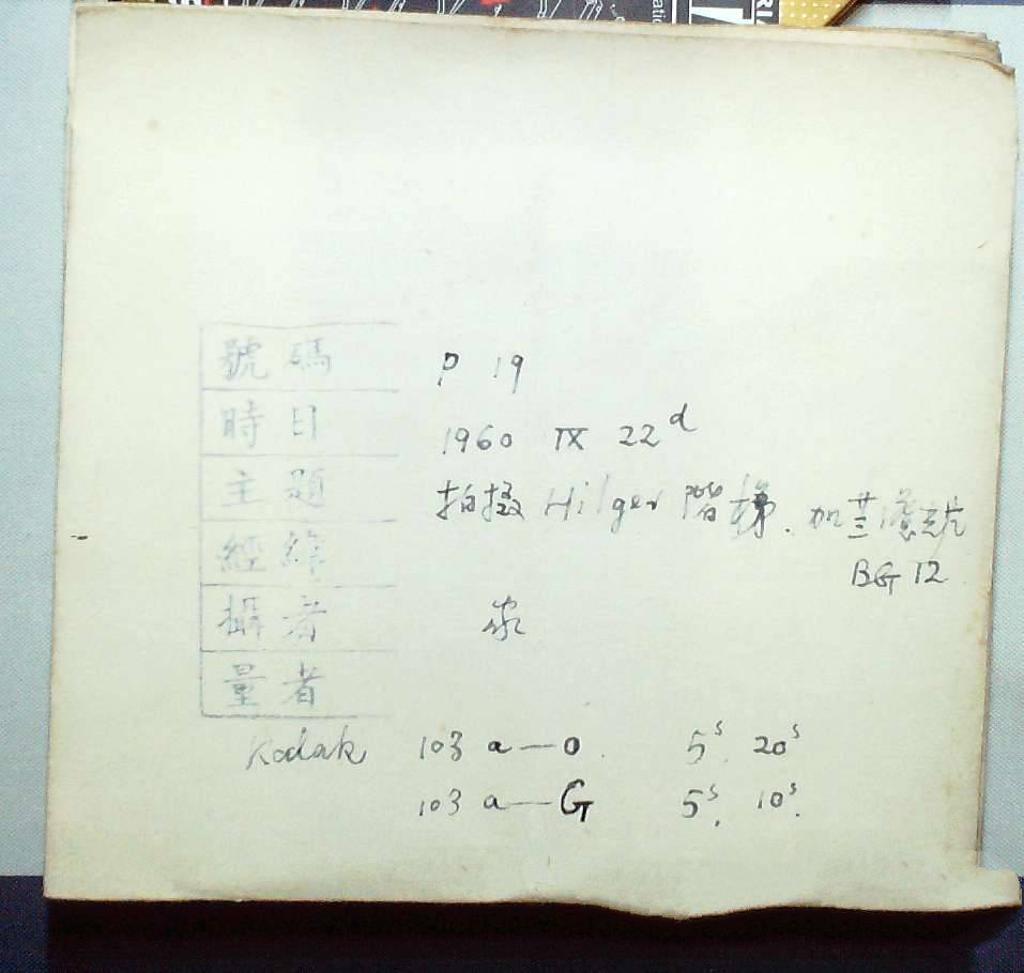 號碼 P 19
時日 1960 IX 22d
主題 拍摄 Hilger 階梯. 加兰滤光片
BG 12
經緯
攝者
量者
Kodak 103 a—O. 5s. 20s
103 a—G 5s. 10s.